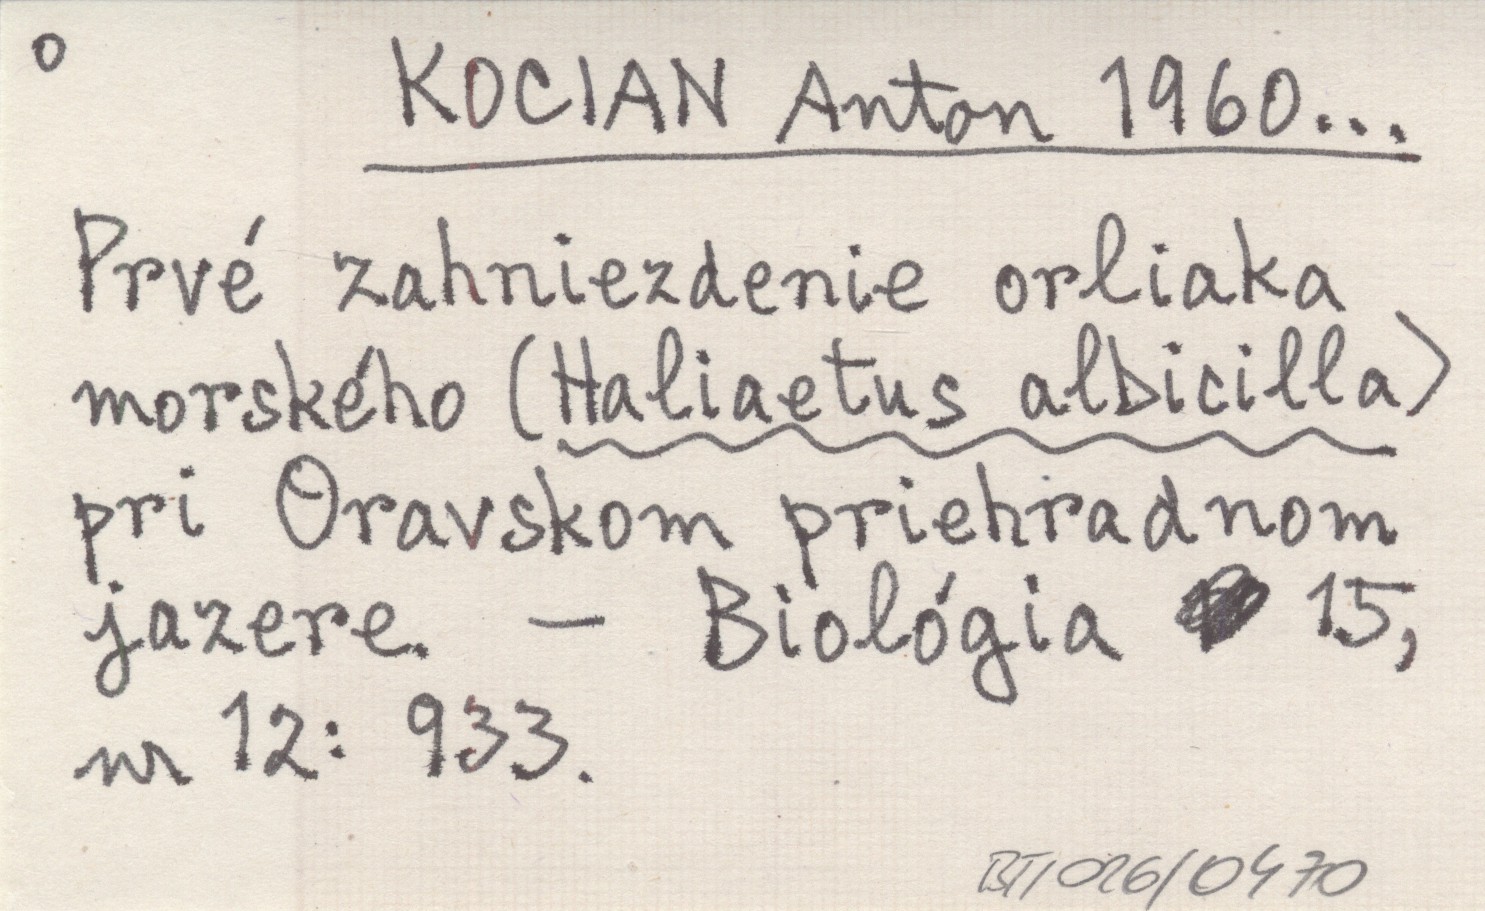 o
KOCIAN Anton 1960...
Prvé zahniezdenie orliaka
morského (Haliaetus albicilla)
pri Oravskom priehradnom
jazere. – Biológia 15,
nr 12: 933.
BT/026/0470